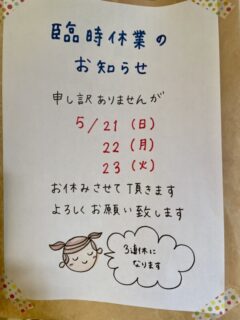 臨時休業の
お知らせ
申し訳ありませんが
5/21(日)
22(月)
23(火)
お休みさせて頂きます
よろしくお願い致します
3連休に
なります